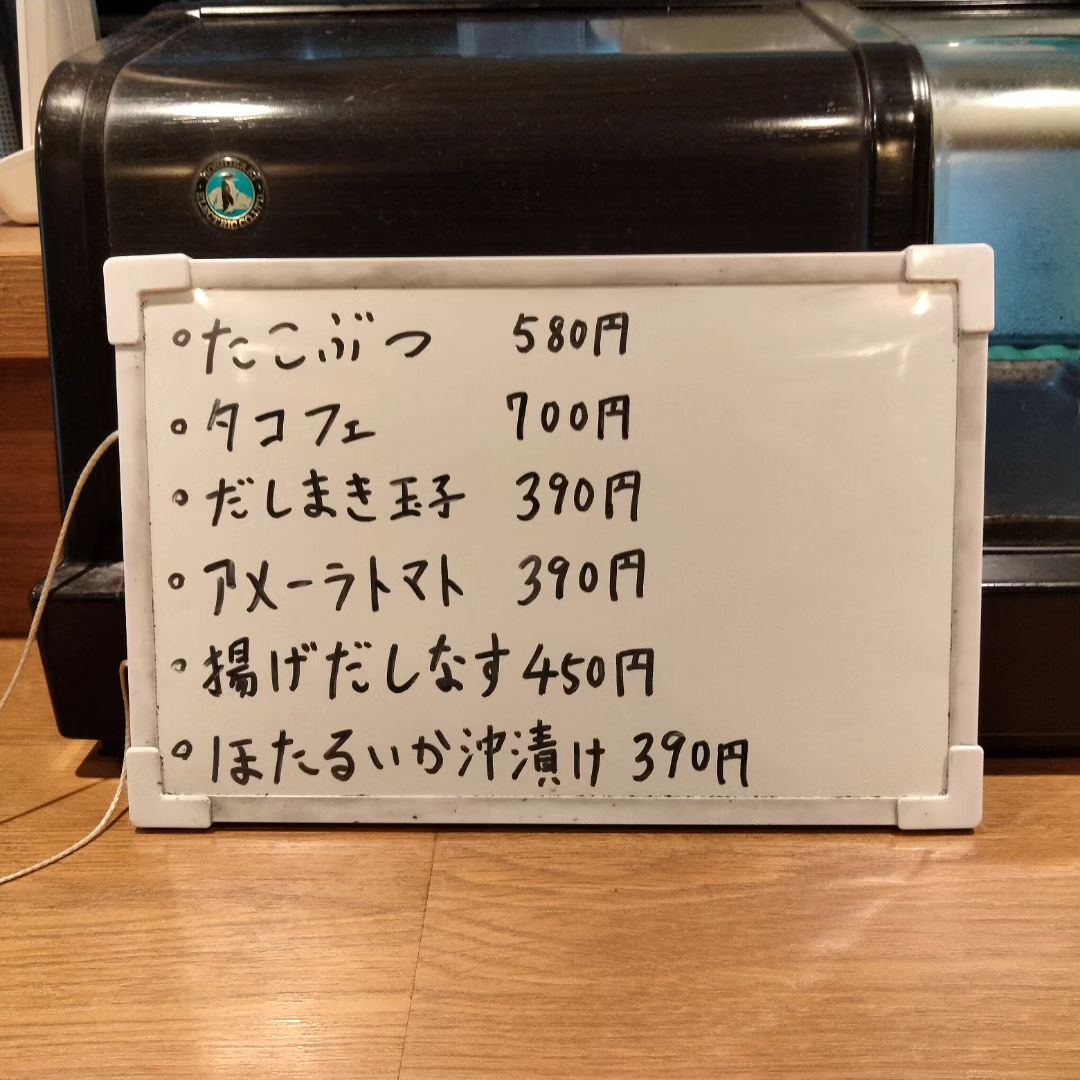 HOSHIZAKI
ELECTRIC CO.,LTD.
。たこぶつ 580円
。タコフェ 700円
。だしまき玉子 390円
。アメーラトマト 390円
。揚げだしなす 450円
。ほたるいか沖漬け 390円